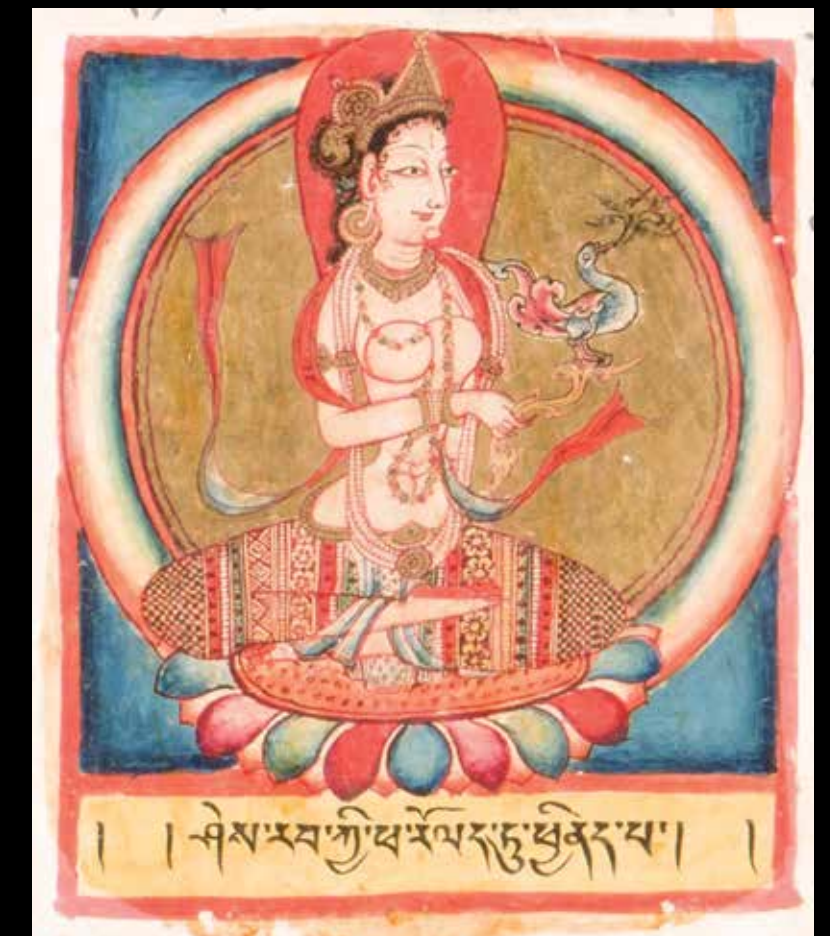 ། །ཤེས་རབ་ཀྱི་ཕ་རོལད་ཏུ་ཕྱིནད་པ་། །